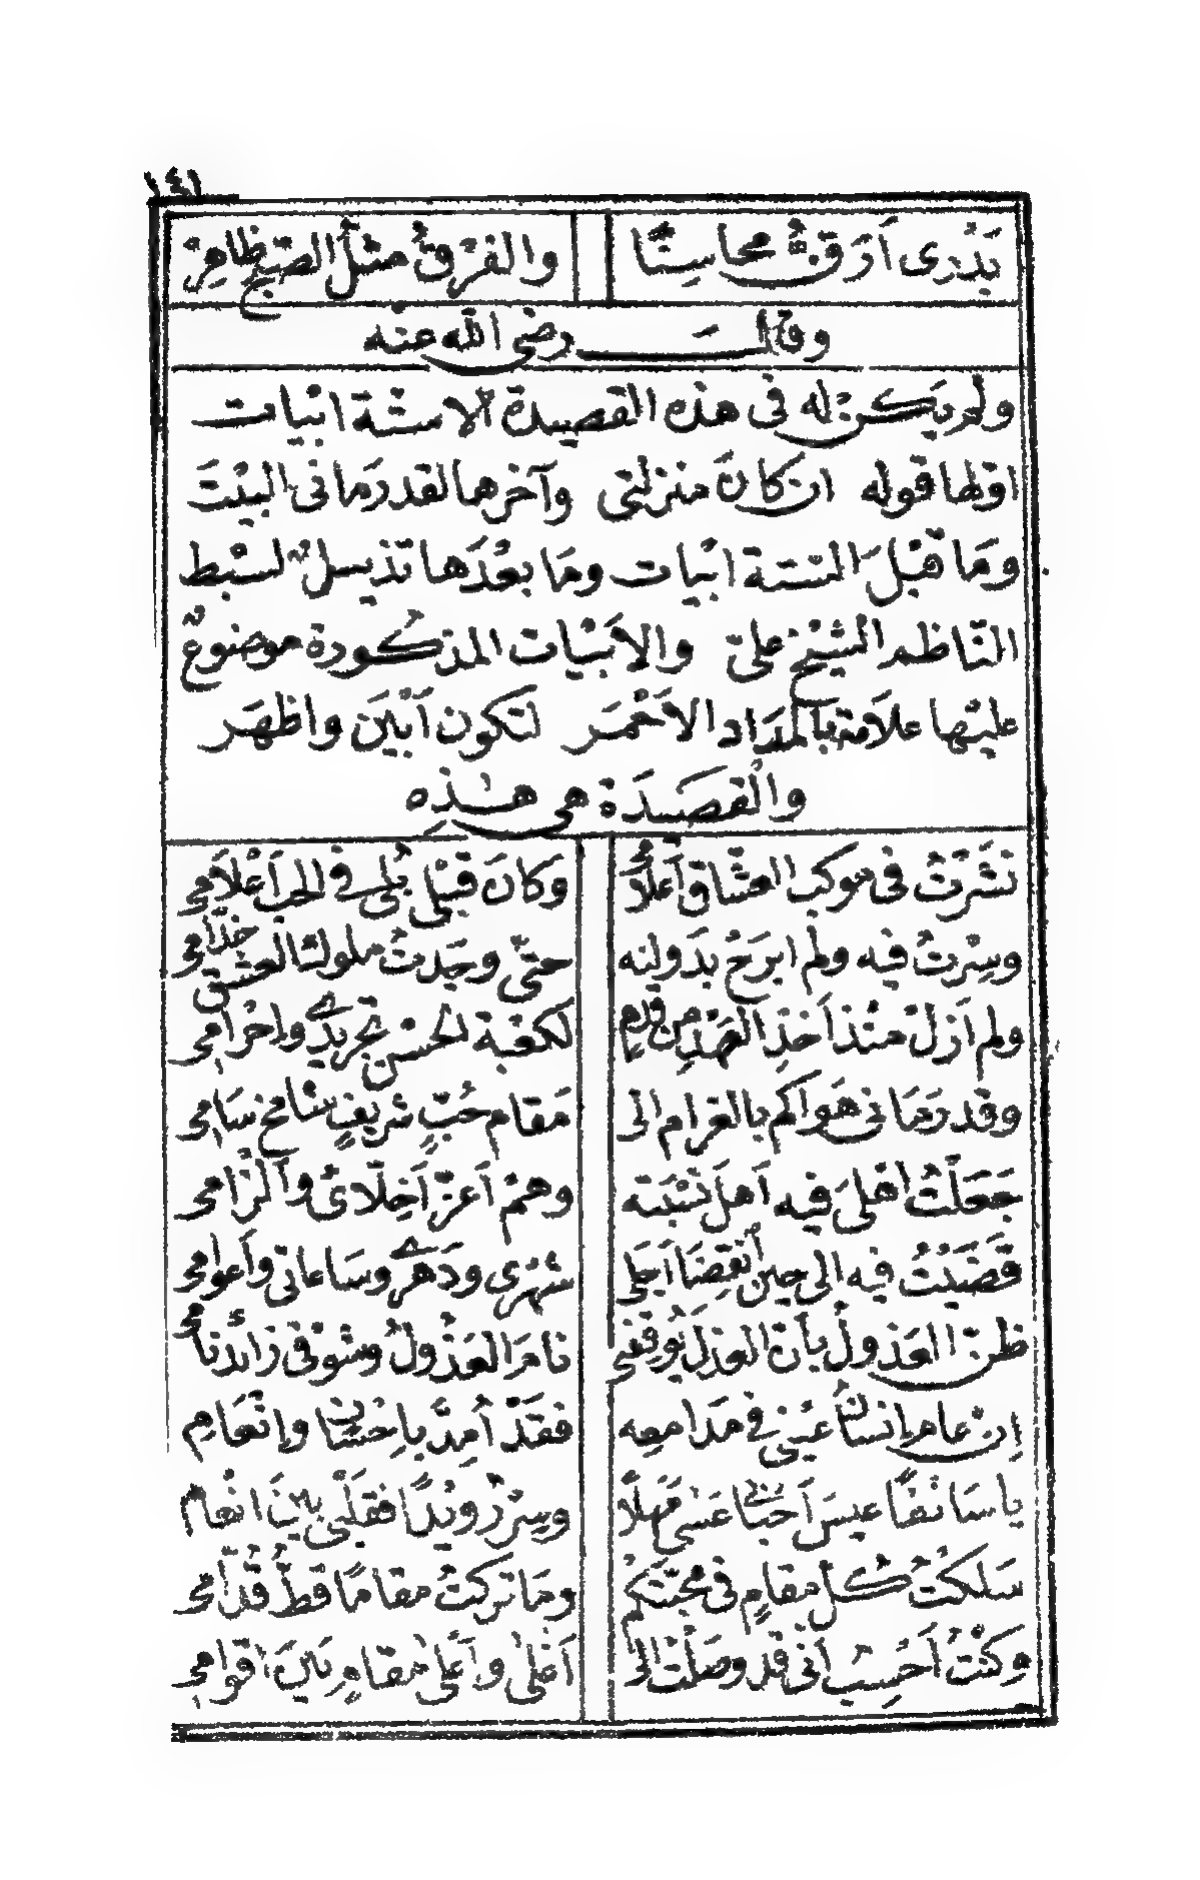 ١٤١
بَدْرِى اَرَقُّ مَحَاسِنًا والفَرْقُ مثلُ الصّبحِ ظاهِرْ
وقال رضى الله عنه
ولم يكن له فى هذه القصيدة الاستّة ابْيات
اوّلها قوله ان كانَ منزلتى وآخرها لقد رَمانى البيْتَ
ومَا قبْلَ السَتة ابْيات ومَا بعْدَها تذييلٌ لسبْط
النّاظم الشيْخ علىّ والاَبْيات المذكورة موضوعٌ
عليْها علاَمة بالمدَاد الاَحْمَر لتكون اَبْيَن واظهَر
والْقصَيدَة هى هٰذِهِ
نَشَرْتُ فى موكب العشّاق اَعْلاَمى وَكانَ قبْلى بُلى فى الحبِ اَعْلاَمى
وسِرْتُ فيه ولم ابرَحْ بدَولته حتىّ وجَدتُ ملوكَ العشق خدّامى
ولم اَزلْ منْذ اَخذِ العَهْدِ من قدمٍ لكعْبة الحسْن تجريدى واِحْرامى
وقد رَمَانى هَواكم بالغرام الى مَقام حُبٍّ شريفٍ شامخٍ سَامى
جَعَلْتُ اهْلىَ فيه اَهلَ نسْبَته وهمْ اَعزّ اَخِلّائى وَاَلْزامى
قَضَيْتُ فيه الى حين اَنْقِضَا اَجَلى شهْرِى ودَهْرى وسَاعاتى وَاَعوامى
ظنّ العَذولُ بأنّ العذلَ يُوقفنى نامَ العَذْولُ وشَوْقى زائدٌ نامى
اِنْ عام اِنسَانُ عيْنى فى مَدَامعِه فقَدْ اُمِدَّ باِحْسَانٍ واِنْعَامِ
ياسَائقًا عيسَ اَحبَابى عَسَى مَهلًا وسِرْ رُوَيْدًا فقلْبى بيْنَ انْعامِ
سَلكْتُ كلّ مقامٍ فى محبّتكم ومَا تركتُ مقامًا قطُّ قُدّامى
وَكنْتُ اَحْسِبُ اَنّى قد وصَلْتُ الى اَعْلىٰ وَاَعْلى مقامٍ بَيْنَ اقوامى